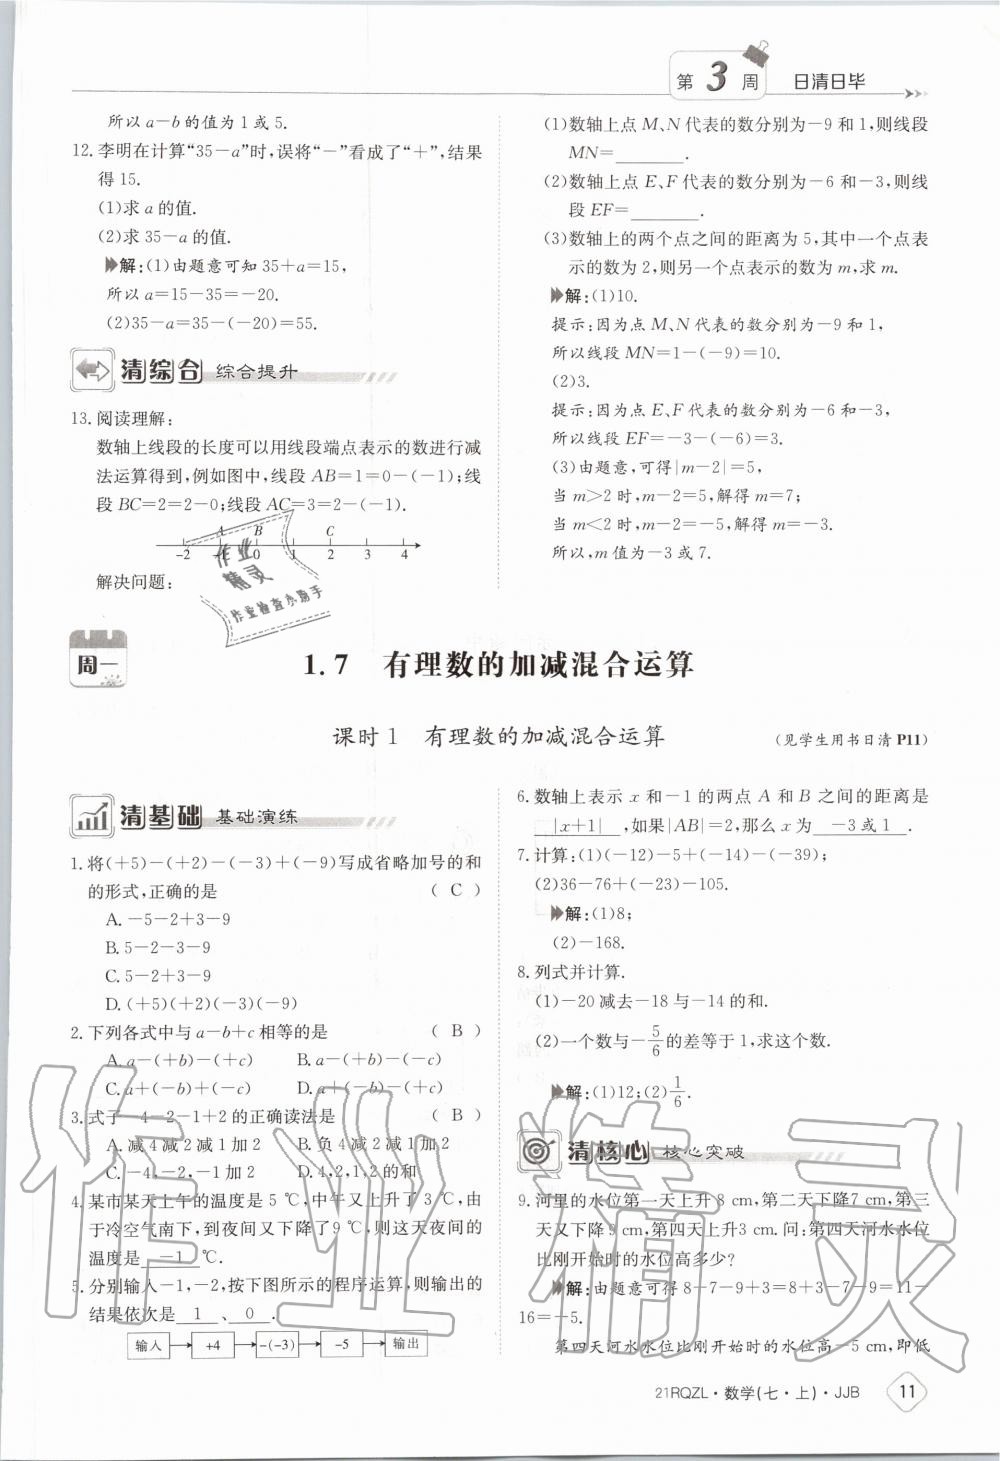 第 3 周 日清日毕
所以a-b的值为1或5.
12.李明在计算“35-a”时,误将“-”看成了“+”,结果
得15.
(1)求a的值.
(2)求35-a的值.
解:(1)由题意可知35+a=15,
所以a=15-35=-20.
(2)35-a=35-(-20)=55.
清综合 综合提升
13.阅读理解:
数轴上线段的长度可以用线段端点表示的数进行减
法运算得到,例如图中,线段AB=1=0-(-1);线
段BC=2=2-0;线段AC=3=2-(-1).
A B C
-2 -1 0 1 2 3 4
解决问题:
(1)数轴上点M、N代表的数分别为-9和1,则线段
MN=______.
(2)数轴上点E、F代表的数分别为-6和-3,则线
段EF=______.
(3)数轴上的两个点之间的距离为5,其中一个点表
示的数为2,则另一个点表示的数为m,求m.
解:(1)10.
提示:因为点M、N代表的数分别为-9和1,
所以线段MN=1-(-9)=10.
(2)3.
提示:因为点E、F代表的数分别为-6和-3,
所以线段EF=-3-(-6)=3.
(3)由题意,可得|m-2|=5,
当m>2时,m-2=5,解得m=7;
当m<2时,m-2=-5,解得m=-3.
所以,m值为-3或7.
作业
精灵
作业检查小助手
周一
1.7 有理数的加减混合运算
课时1 有理数的加减混合运算
(见学生用书日清P11)
清基础 基础演练
1.将(+5)-(+2)-(-3)+(-9)写成省略加号的和
的形式,正确的是 ( C )
A.-5-2+3-9
B.5-2-3-9
C.5-2+3-9
D.(+5)(+2)(-3)(-9)
2.下列各式中与a-b+c相等的是 ( B )
A.a-(+b)-(+c) B.a-(+b)-(-c)
C.a+(-b)+(-c) D.a+(-b)-(+c)
3.式子-4-2-1+2的正确读法是 ( B )
A.减4减2减1加2 B.负4减2减1加2
C.-4,-2,-1加2 D.4,2,1,2的和
4.某市某天上午的温度是5 ℃,中午又上升了3 ℃,由
于冷空气南下,到夜间又下降了9 ℃,则这天夜间的
温度是 -1 ℃.
5.分别输入-1,-2,按下图所示的程序运算,则输出的
结果依次是 1 、 0 .
输入 +4 -(-3) -5 输出
6.数轴上表示x和-1的两点A和B之间的距离是
|x+1| ,如果|AB|=2,那么x为 -3或1 .
7.计算:(1)(-12)-5+(-14)-(-39);
(2)36-76+(-23)-105.
解:(1)8;
(2)-168.
8.列式并计算.
(1)-20减去-18与-14的和.
(2)一个数与-5/6的差等于1,求这个数.
解:(1)12;(2)1/6.
清核心 核心突破
9.河里的水位第一天上升8 cm,第二天下降7 cm,第三
天又下降9 cm,第四天上升3 cm.问:第四天河水水位
比刚开始时的水位高多少?
解:由题意可得8-7-9+3=8+3-7-9=11-
16=-5.
第四天河水水位比刚开始时的水位高-5 cm,即低
21RQZL·数学(七·上)·JJB 11
作业精灵